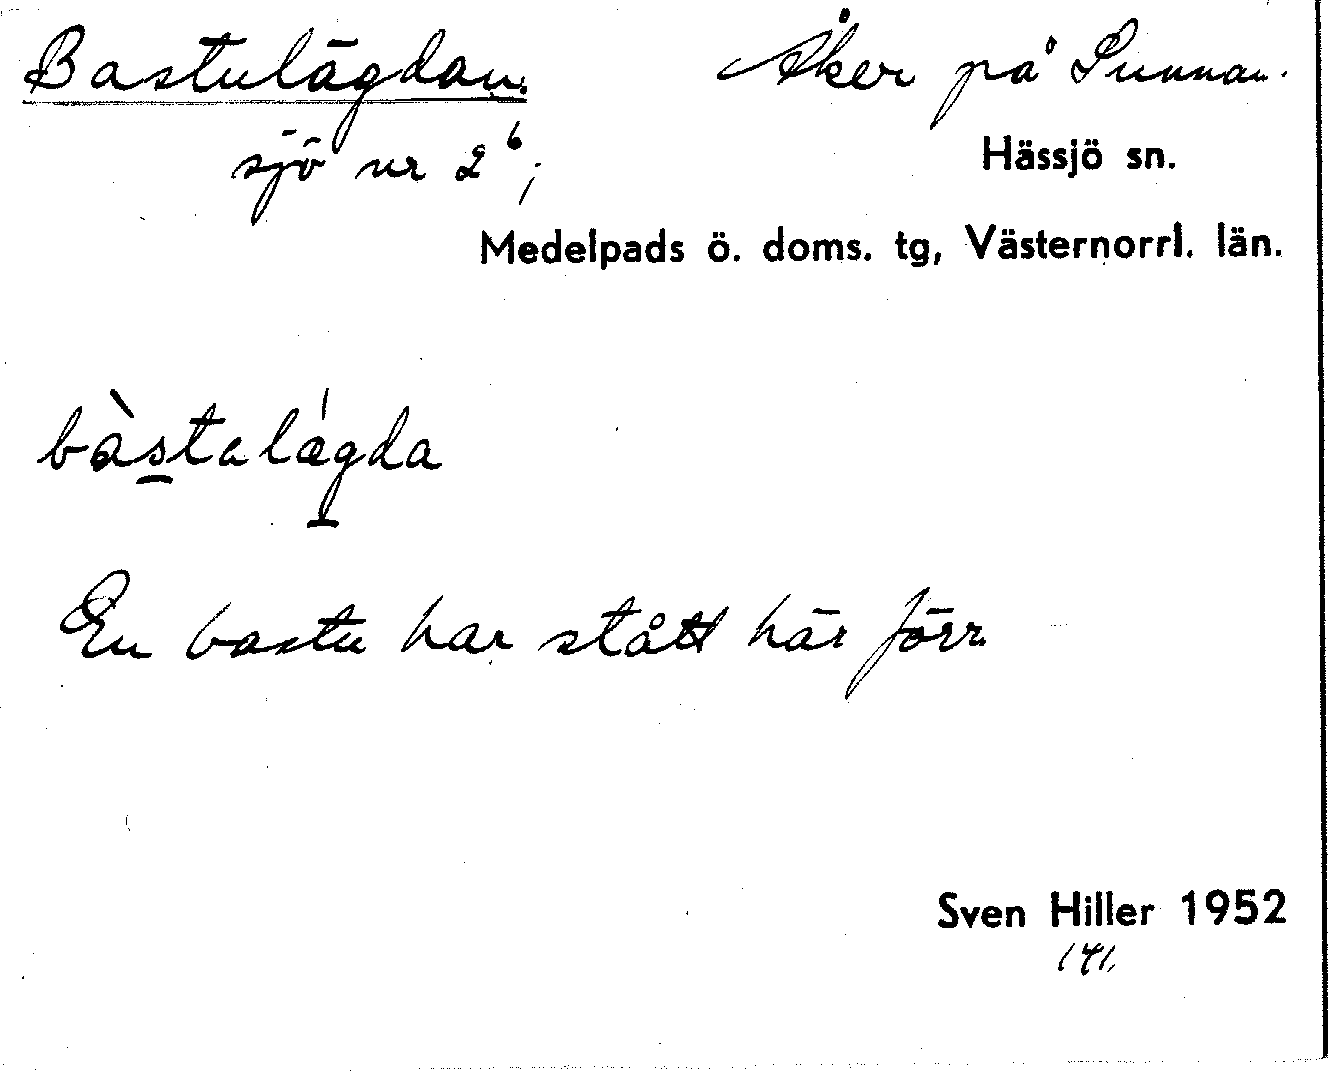 Bastulägdan. Åker på Sunnan-
sjö nr 2⁶;
Hässjö sn.
Medelpads ö. doms. tg, Västernorrl. län.
bàstalǽgda
En bastu har stått här förr.
Sven Hiller 1952
141.